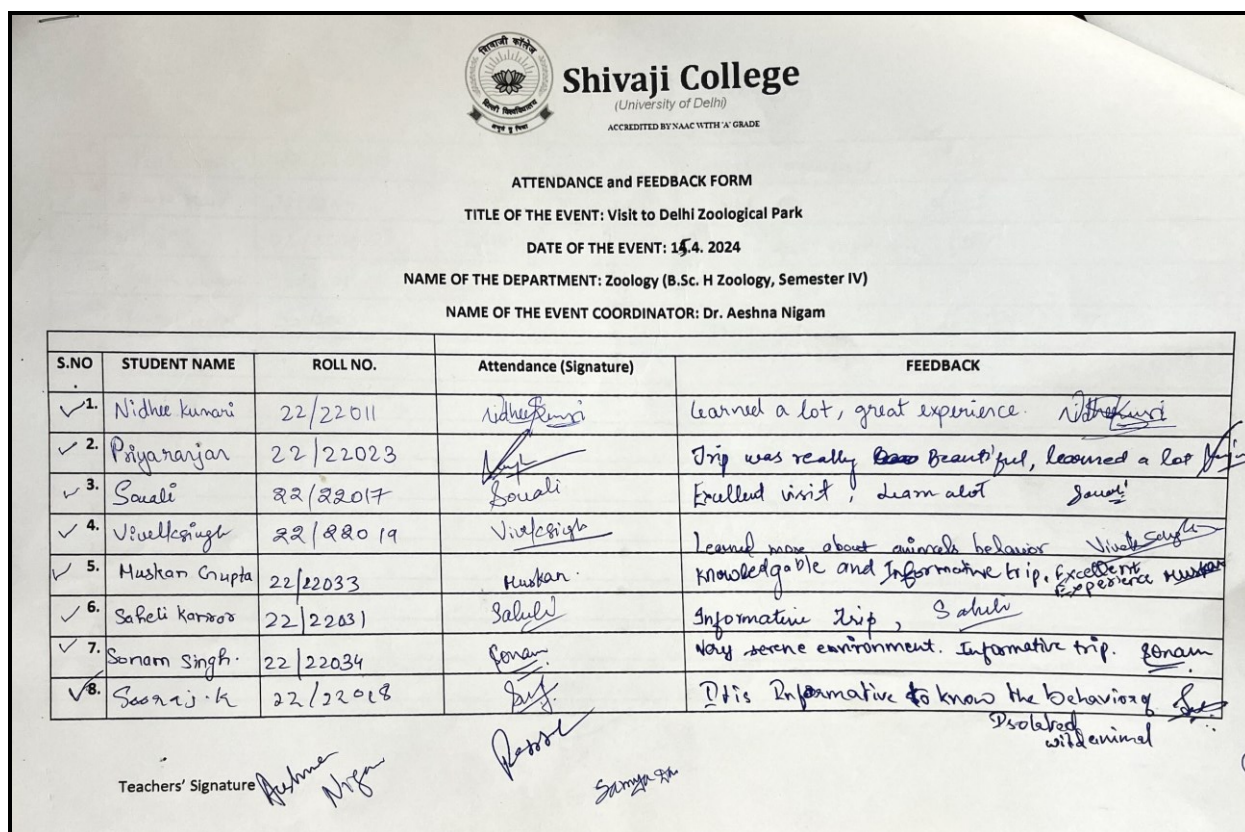 शिवाजी कॉलेज
दिल्ली विश्वविद्यालय
Shivaji College
(University of Delhi)
ACCREDITED BY NAAC WITH 'A' GRADE
ATTENDANCE and FEEDBACK FORM
TITLE OF THE EVENT: Visit to Delhi Zoological Park
DATE OF THE EVENT: 15.4. 2024
NAME OF THE DEPARTMENT: Zoology (B.Sc. H Zoology, Semester IV)
NAME OF THE EVENT COORDINATOR: Dr. Aeshna Nigam
S.NO STUDENT NAME ROLL NO. Attendance (Signature) FEEDBACK
1. Nidhee Kumari 22/22011 Nidhee Kumari Learned a lot, great experience. Nidhee Kumari
2. Priyaranjan 22/22023 Trip was really Beautiful, learned a lot
3. Souali 22/22017 Souali Excellent visit, Learn alot Souali
4. Vivek singh 22/22019 Vivek singh Learned more about animals behavior Vivek Singh
5. Muskan Gupta 22/22033 Muskan. Knowledgable and Informative trip. Excellent Experience Muskan
6. Saheli Karmor 22/22031 Saheli Informative Trip, Saheli
7. Sonam Singh. 22/22034 Sonam Very serene environment. Informative trip. Sonam
8. Sooraj.K 22/22018 It is Informative to know the behavior of
Isolated
wild animal
Teachers' Signature Aeshna
Nigam